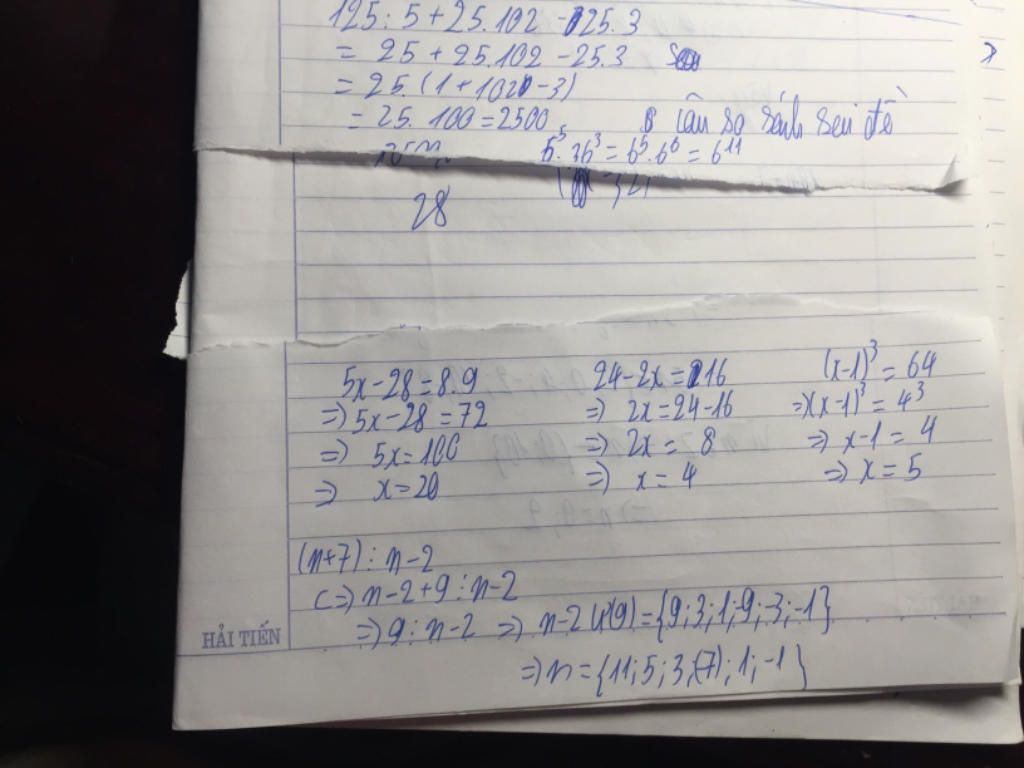 125 : 5 + 25.102 - 25.3
= 25 + 25.102 - 25.3
= 25.(1 + 102 - 3)
= 25. 100 = 2500
câu so sánh sai đề
6^5. 36^3 = 6^5. 6^6 = 6^11
28
5x - 28 = 8.9
=> 5x - 28 = 72
=> 5x = 100
=> x = 20
24 - 2x = 16
=> 2x = 24 - 16
=> 2x = 8
=> x = 4
(x-1)^3 = 64
=> (x-1)^3 = 4^3
=> x - 1 = 4
=> x = 5
(n+7) ⋮ n-2
<=> n-2+9 ⋮ n-2
=> 9 ⋮ n-2 => n-2 Ư(9) = {9; 3; 1; -9; -3; -1}
=> n = {11; 5; 3; (-7); 1; -1}
HẢI TIẾN